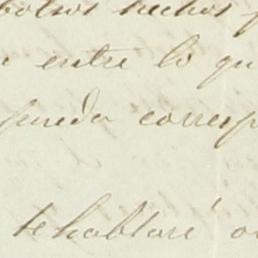 bolsos hechos p
entre lo qu
pueda corresp
te hablaré o